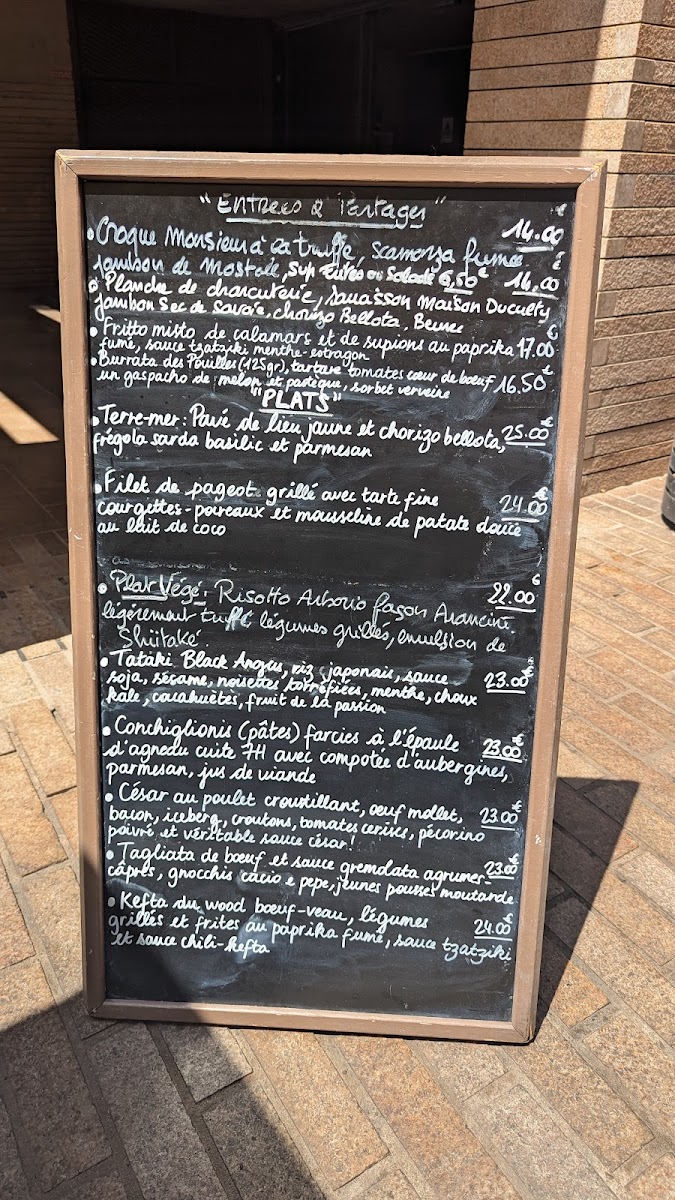 "Entrées & Partages"
• Croque Monsieur à la truffe, scamorza fumée 14.00€
jambon de Mostole, sup Frites ou Salade 6,50€
• Planche de charcuterie, saucisson Maison Ducuety 14,00€
jambon Sec de Savoie, chorizo Bellota, Beurre
• Fritto misto de calamars et de supions au paprika 17.00€
fumé, sauce tzatziki menthe-estragon
• Burrata des Pouilles (125gr), tartare tomates cœur de bœuf 16.50€
un gaspacho de melon et pastèque, sorbet verveine
"PLATS"
• Terre-mer: Pavé de lieu jaune et chorizo bellota, 25.00€
frégola sarda basilic et parmesan
• Filet de pageot grillé avec tarte fine 24.00€
courgettes-poireaux et mousseline de patate douce
au lait de coco
• Plat Végé: Risotto Arborio façon Arancini 22.00€
légèrement truffé légumes grillés, émulsion de
Shiitaké.
• Tataki Black Angus, riz japonais, sauce 23.00€
soja, sésame, noisettes torréfiées, menthe, choux
kale, cacahuètes, fruit de la passion
• Conchiglionis (pâtes) farcies à l'épaule 23.00€
d'agneau cuite 7H avec compotée d'aubergines,
parmesan, jus de viande
• César au poulet croustillant, œuf mollet, 23.00€
bacon, iceberg, croutons, tomates cerises, pécorino
poivré et véritable sauce césar!
• Tagliata de bœuf et sauce gremolata agrumes- 23.00€
câpres, gnocchis cacio e pepe, jeunes pousses moutarde
• Kefta du wood bœuf-veau, légumes 24.00€
grillés et frites au paprika fumé, sauce tzatziki
et sauce chili-kefta